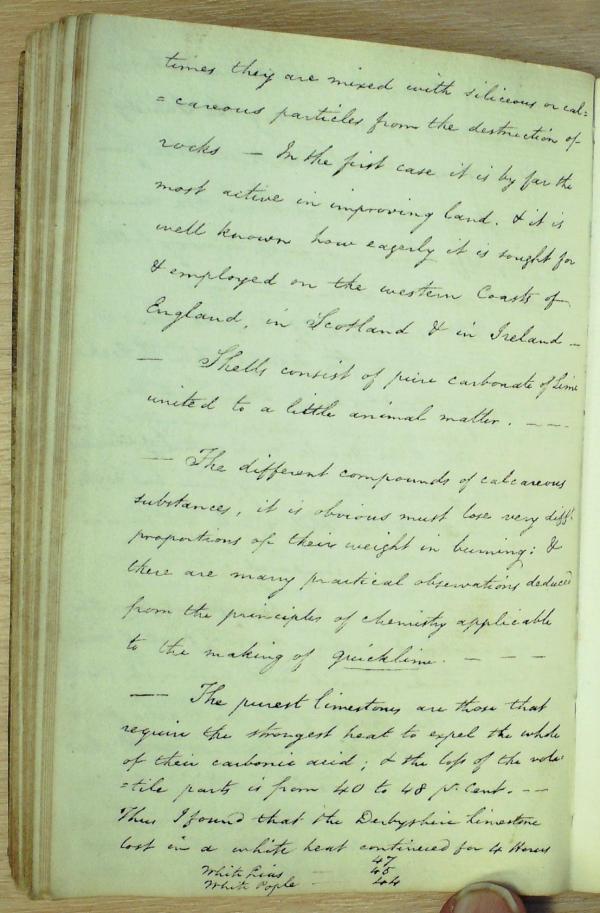 times they are mixed with siliceous or cal=
=careous particles from the destruction of
rocks — In the first case it is by far the
most active in improving land. & it is
well known how eagerly it is sought for
& employed on the western Coasts of
England, in Scotland & in Ireland —
— Shells consist of pure carbonate of Lime
united to a little animal matter. — —
— The different compounds of calcareous
substances, it is obvious must lose very difft
proportions of their weight in burning: &
there are many practical observations deduced
from the principles of chemistry applicable
to the making of quicklime. — — —
— The purest limestones are those that
require the strongest heat to expel the whole
of their carbonic acid; & the loss of the vola
=tile parts is from 40 to 48 pr Cent. — —
Thus I found that the Derbyshire limestone
lost in a white heat continued for 4 Hours
47
White Lias — 45
White 44